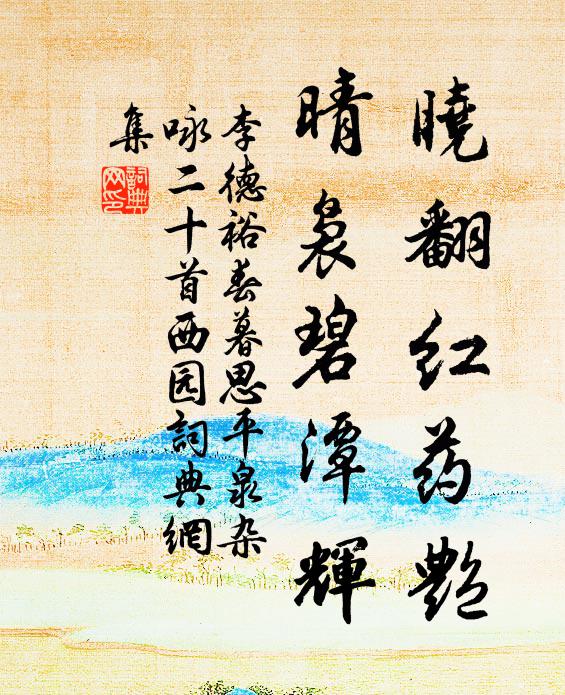 曉翻红药艷
晴裊碧潭輝
李德裕春暮思平泉杂
咏二十首西园詞典網
集
詞典
网印